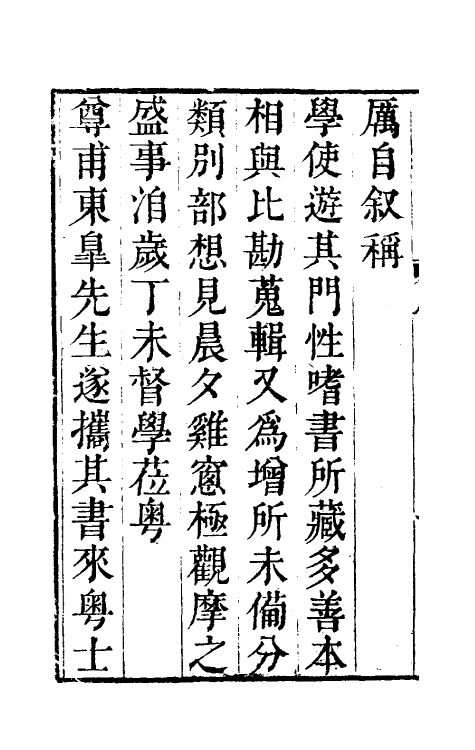 厲自叙稱
學使遊其門性嗜書所藏多善本
相與比勘蒐輯又為增所未備分
類別部想見晨夕雞窻極觀摩之
盛事洎歲丁未督學莅粤
尊甫東臯先生遂攜其書來粤士